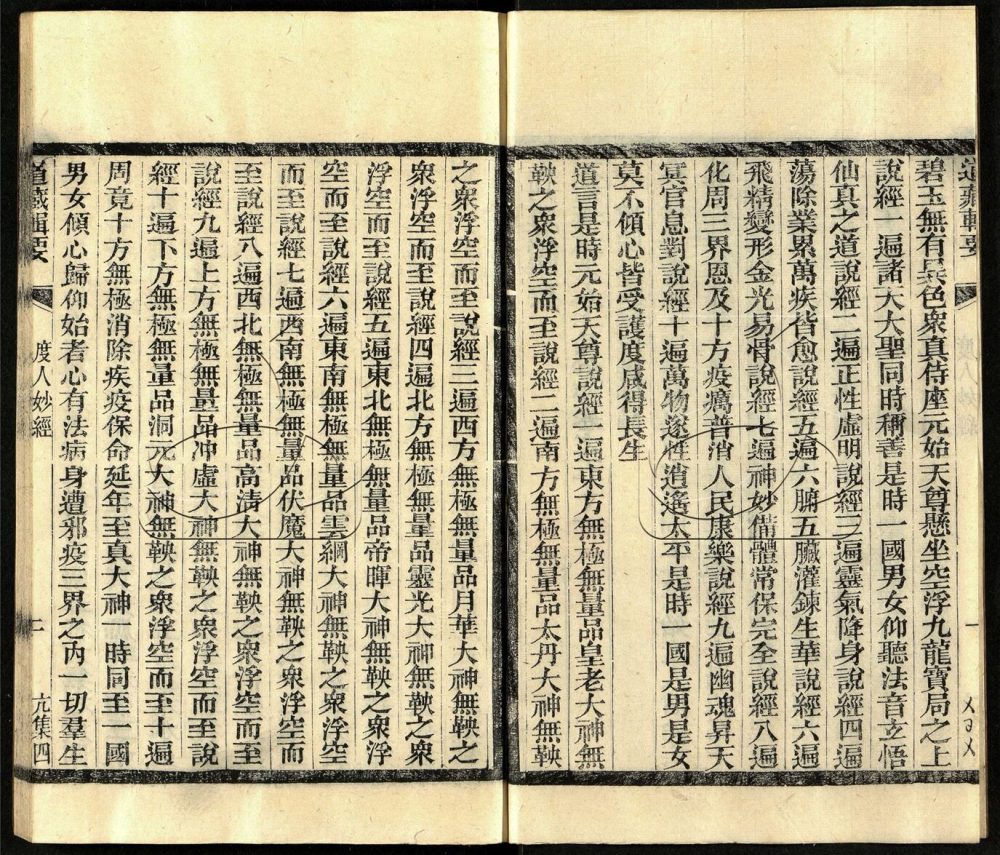 碧玉無有異色衆真侍座元始天尊懸坐空浮九龍寶局之上
說經一遍諸大大聖同時稱善是時一國男女仰聽法音立悟
仙真之道說經二遍正性虛明說經三遍靈氣降身說經四遍
蕩除業累萬疾皆愈說經五遍六腑五臟灌鍊生華說經六遍
飛精變形金光易骨說經七遍神妙備體常保完全說經八遍
化周三界恩及十方疫癘普消人民康樂說經九遍幽魂昇天
冥官息對說經十遍萬物遂性逍遙太平是時一國是男是女
莫不傾心皆受護度咸得長生
道言是時元始天尊說經一遍東方無極無量品皇老大神無
鞅之衆浮空而至說經二遍南方無極無量品太丹大神無鞅
之衆浮空而至說經三遍西方無極無量品月華大神無鞅之
衆浮空而至說經四遍北方無極無量品靈光大神無鞅之衆
浮空而至說經五遍東北無極無量品帝暉大神無鞅之衆浮
空而至說經六遍東南無極無量品雲綱大神無鞅之衆浮空
而至說經七遍西南無極無量品伏魔大神無鞅之衆浮空而
至說經八遍西北無極無量品高淸大神無鞅之衆浮空而至
說經九遍上方無極無量品冲虛大神無鞅之衆浮空而至說
經十遍下方無極無量品洞元大神無鞅之衆浮空而至十遍
周竟十方無極消除疾疫保命延年至真大神一時同至一國
男女傾心歸仰始者心有法病身遭邪疫三界之內一切羣生
道藏輯要 度人妙經 二 亢集四